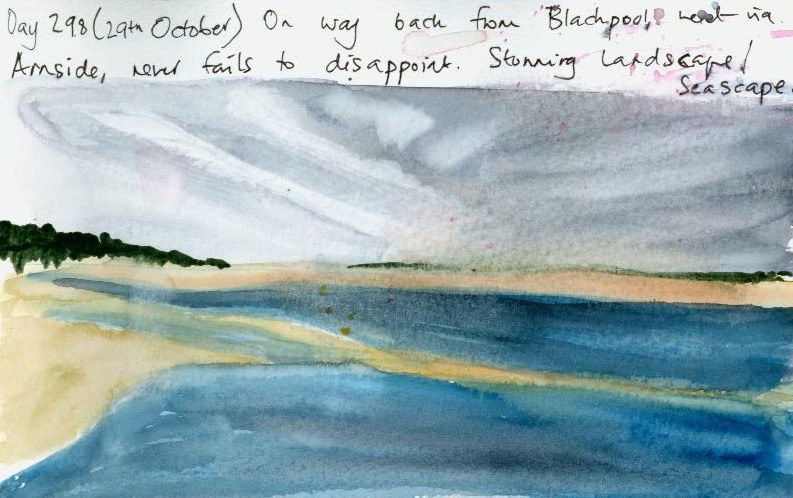 Day 298 (29th October) On way back from Blackpool, went via
Arnside, never fails to disappoint. Stunning Landscape/
Seascape.